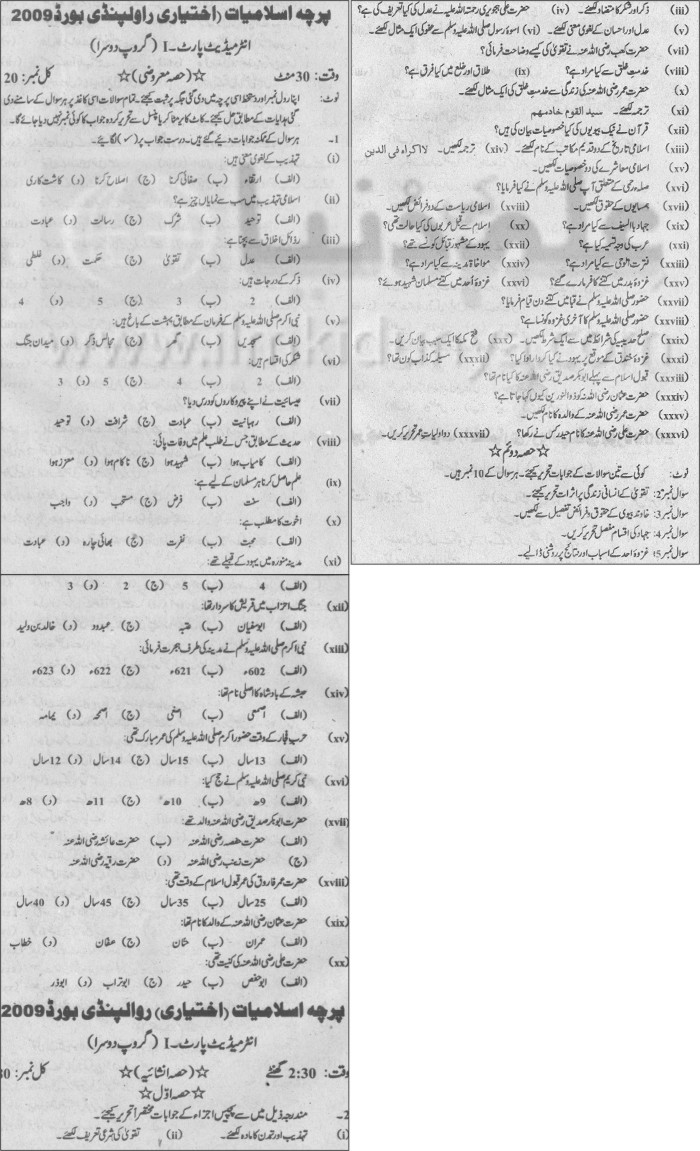 پرچہ اسلامیات (اختیاری) راولپنڈی بورڈ 2009
انٹرمیڈیٹ پارٹ۔I (گروپ دوسرا)
وقت: 30 منٹ ☆(حصہ معروضی)☆ کل نمبر: 20
نوٹ: اپنا رول نمبر اور دستخط اسی پرچہ میں دی گئی جگہ پر ثبت کیجئے۔ تمام سوالات اسی کاغذ پر ہر سوال کے سامنے دی
گئی ہدایات کے مطابق حل کیجئے۔ کاٹ کا یا مٹا کر یا پنسل سے تحریر کردہ جواب کا کوئی نمبر نہیں دیا جائے گا۔
1۔ ہر سوال کے ممکنہ جوابات دیئے گئے ہیں۔ درست جواب پر (✓) لگائیے۔
(i) تہذیب کے لغوی معنی ہیں:
(الف) ارتقاء (ب) صفائی کرنا (ج) اصلاح کرنا (د) کاشت کاری
(ii) اسلامی تہذیب میں سب سے نمایاں چیز ہے؟
(الف) توحید (ب) شرک (ج) رسالت (د) عبادت
(iii) رذائل اخلاق سے بچنا ہے:
(الف) عدل (ب) تقویٰ (ج) حکمت (د) غلطی
(iv) ذکر کے درجات ہیں:
(الف) 2 (ب) 3 (ج) 5 (د) 4
(v) نبی اکرم صلی اللہ علیہ وسلم کے فرمان کے مطابق بہشت کے باغ ہیں:
(الف) مسجدیں (ب) گھر (ج) مجالس ذکر (د) میدان جنگ
(vi) شکر کی اقسام ہیں:
(الف) 2 (ب) 4 (ج) 5 (د) 3
(vii) عیسائیت نے اپنے پیروکاروں کو درس دیا؟
(الف) رہبانیت (ب) عبادت (ج) شرافت (د) توحید
(viii) حدیث کے مطابق جس نے طلب علم میں وفات پائی:
(الف) کامیاب ہوا (ب) شہید ہوا (ج) ناکام ہوا (د) معزز ہوا
(ix) علم حاصل کرنا ہر مسلمان کے لیے ہے:
(الف) سنت (ب) فرض (ج) مستحب (د) واجب
(x) اخوت کا مطلب ہے:
(الف) محبت (ب) نفرت (ج) بھائی چارہ (د) عبادت
(xi) مدینہ منورہ میں یہود کے قبیلے تھے:
(الف) 4 (ب) 5 (ج) 2 (د) 3
(xii) جنگ احزاب میں قریش کا سردار تھا:
(الف) ابوسفیان (ب) عتبہ (ج) عبدود (د) خالد بن ولید
(xiii) نبی اکرم صلی اللہ علیہ وسلم نے مدینہ کی طرف ہجرت فرمائی:
(الف) 602ء (ب) 621ء (ج) 622ء (د) 623ء
(xiv) حبشہ کے بادشاہ کا اصلی نام تھا:
(الف) اصمعی (ب) اصفی (ج) اصحمہ (د) یمامہ
(xv) حرب فجار کے وقت حضور اکرم صلی اللہ علیہ وسلم کی عمر مبارک تھی:
(الف) 13سال (ب) 15سال (ج) 14سال (د) 12سال
(xvi) نبی کریم صلی اللہ علیہ وسلم نے حج کیا:
(الف) 9ھ (ب) 10ھ (ج) 11ھ (د) 8ھ
(xvii) حضرت ابوبکر صدیق رضی اللہ عنہ والد تھے:
(الف) حضرت حفصہ رضی اللہ عنہ (ب) حضرت عائشہ رضی اللہ عنہ
(ج) حضرت زینب رضی اللہ عنہ (د) حضرت رقیہ رضی اللہ عنہ
(xviii) حضرت عمر فاروق کی عمر قبول اسلام کے وقت تھی:
(الف) 25سال (ب) 35سال (ج) 45سال (د) 40سال
(xix) حضرت عثمان رضی اللہ عنہ کے والد کا نام تھا:
(الف) عمران (ب) حنان (ج) عفان (د) خطاب
(xx) حضرت علی رضی اللہ عنہ کی کنیت تھی:
(الف) ابوحفص (ب) حیدر (ج) ابوتراب (د) ابوذر
پرچہ اسلامیات (اختیاری) روالپنڈی بورڈ 2009
انٹرمیڈیٹ پارٹ۔I (گروپ دوسرا)
وقت: 2:30 گھنٹے ☆(حصہ انشائیہ)☆ کل نمبر: 80
☆حصہ اوّل☆
2۔ مندرجہ ذیل میں سے پچیس اجزاء کے جوابات مختصراً تحریر کیجئے۔
(i) تہذیب اور تمدن کا مادہ لکھئے۔ (ii) تقویٰ کی شرعی تعریف لکھئے۔
(iii) ذکر اور شکر کا متضاد لکھئے۔ (iv) حضرت علی ہجویری رحمتہ اللہ علیہ نے عدل کی کیا تعریف کی ہے؟
(v) عدل اور احسان کے لغوی معنی لکھئے۔ (vi) اسوۂ رسول صلی اللہ علیہ وسلم سے عفو کی ایک مثال لکھئے۔
(vii) حضرت کعب رضی اللہ عنہ نے تقویٰ کی کیسے وضاحت فرمائی؟
(viii) خدمت خلق سے کیا مراد ہے؟ (ix) طلاق اور خلع میں کیا فرق ہے؟
(x) حضرت عمر رضی اللہ عنہ کی زندگی سے خدمت خلق کی ایک مثال لکھئے۔
(xi) ترجمہ لکھئے۔ سید القوم خادمهم
(xii) قرآن نے نیک بیویوں کی کیا خصوصیات بیان کی ہیں؟
(xiii) اسلامی تاریخ کے دو قدیم مکاتب کے نام لکھئے۔ (xiv) ترجمہ لکھیں۔ لا اکراہ فی الدین
(xv) اسلامی معاشرے کی دو خصوصیات لکھیں۔
(xvi) صلہ رحمی کے متعلق آپ صلی اللہ علیہ وسلم نے کیا فرمایا؟
(xvii) ہمسایوں کے حقوق لکھیں۔ (xviii) اسلامی ریاست کے دو فرائض لکھیں۔
(xix) جہاد بالسیف سے کیا مراد ہے؟ (xx) اسلام سے قبل عربوں کی کیا حالت تھی؟
(xxi) عرب کی وجہ تسمیہ کیا ہے؟ (xxii) یہود کے مشہور قبائل کون سے تھے؟
(xxiii) فترت الوحی سے کیا مراد ہے؟ (xxiv) مواخاۃ مدینہ سے کیا مراد ہے؟
(xxv) غزوۂ بدر میں کتنے کافر مارے گئے؟ (xxvi) غزوۂ احد میں کتنے مسلمان شہید ہوئے؟
(xxvii) حضور صلی اللہ علیہ وسلم نے قبا میں کتنے دن قیام فرمایا؟
(xxviii) حضور صلی اللہ علیہ وسلم کا آخری غزوہ کونسا ہے؟
(xxix) صلح حدیبیہ کی شرائط میں سے ایک شرط لکھیں۔ (xxx) فتح مکہ کا ایک سبب بیان کریں۔
(xxxi) غزوۂ خندق کے موقع پر یہود نے کیا کردار ادا کیا؟ (xxxii) مسیلمہ کذاب کون تھا؟
(xxxiii) قبول اسلام سے پہلے ابوبکر صدیق رضی اللہ عنہ کا کیا نام تھا؟
(xxxiv) حضرت عثمان رضی اللہ عنہ کو ذوالنورین کیوں کہا جاتا ہے؟
(xxxv) حضرت عمر رضی اللہ عنہ کے والدہ کا نام لکھیں۔
(xxxvi) حضرت علی رضی اللہ عنہ کا نام حیدر کس نے رکھا؟ (xxxvii) دو اولیات عمر تحریر کریں۔
☆حصہ دوئم☆
نوٹ: کوئی سے تین سوالات کے جوابات تحریر کیجئے۔ ہر سوال کے 10 نمبر ہیں۔
سوال نمبر:2 تقویٰ کے انسانی زندگی پر اثرات تحریر کیجئے۔
سوال نمبر:3 خاوند بیوی کے حقوق و فرائض تفصیل سے لکھیں۔
سوال نمبر:4 جہاد کی اقسام مفصل تحریر کریں۔
سوال نمبر:5 غزوۂ احد کے اسباب اور نتائج پر روشنی ڈالیے۔